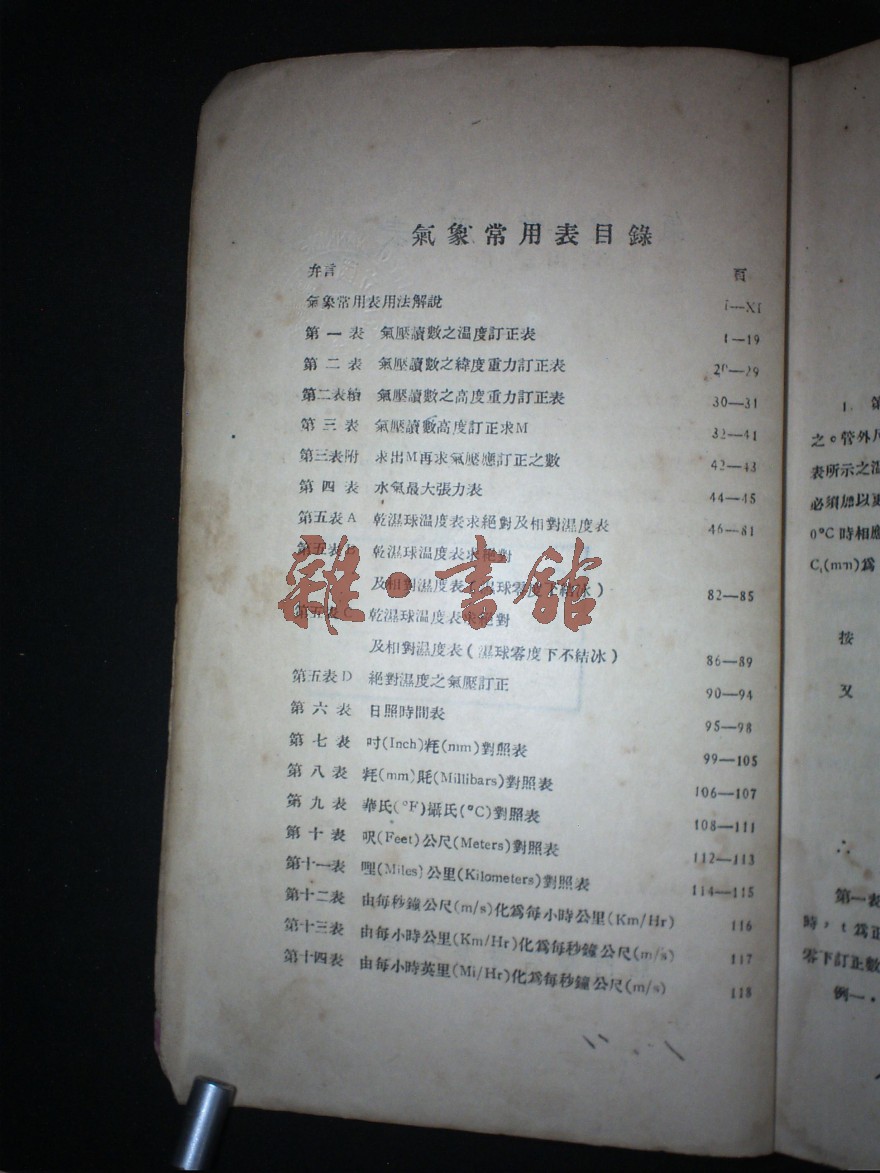 氣象常用表目錄
弁言 頁
氣象常用表用法解說 i—XI
第一表 氣壓讀數之溫度訂正表 1—19
第二表 氣壓讀數之緯度重力訂正表 20—29
第二表續 氣壓讀數之高度重力訂正表 30—31
第三表 氣壓讀數高度訂正求M 32—41
第三表附 求出M再求氣壓應訂正之數 42—43
第四表 水氣最大張力表 44—45
第五表A 乾濕球溫度表求絕對及相對濕度表 46—81
第五表B 乾濕球溫度表求絕對
及相對濕度表(濕球零度下結冰) 82—85
第五表C 乾濕球溫度表求絕對
及相對濕度表(濕球零度下不結冰) 86—89
第五表D 絕對濕度之氣壓訂正 90—94
第六表 日照時間表 95—98
第七表 吋(Inch)粍(mm)對照表 99—105
第八表 粍(mm)毦(Millibars)對照表 106—107
第九表 華氏(°F)攝氏(°C)對照表 108—111
第十表 呎(Feet)公尺(Meters)對照表 112—113
第十一表 哩(Miles)公里(Kilometers)對照表 114—115
第十二表 由每秒鐘公尺(m/s)化爲每小時公里(Km/Hr) 116
第十三表 由每小時公里(Km/Hr)化爲每秒鐘公尺(m/s) 117
第十四表 由每小時英里(Mi/Hr)化爲每秒鐘公尺(m/s) 118
雜·書館
1. 第
之。管外
表所示之溫
必須加以
0°C時相應
C,(mm)爲
按
又
∴
第一表
時，t爲正
零下訂正數
例一．